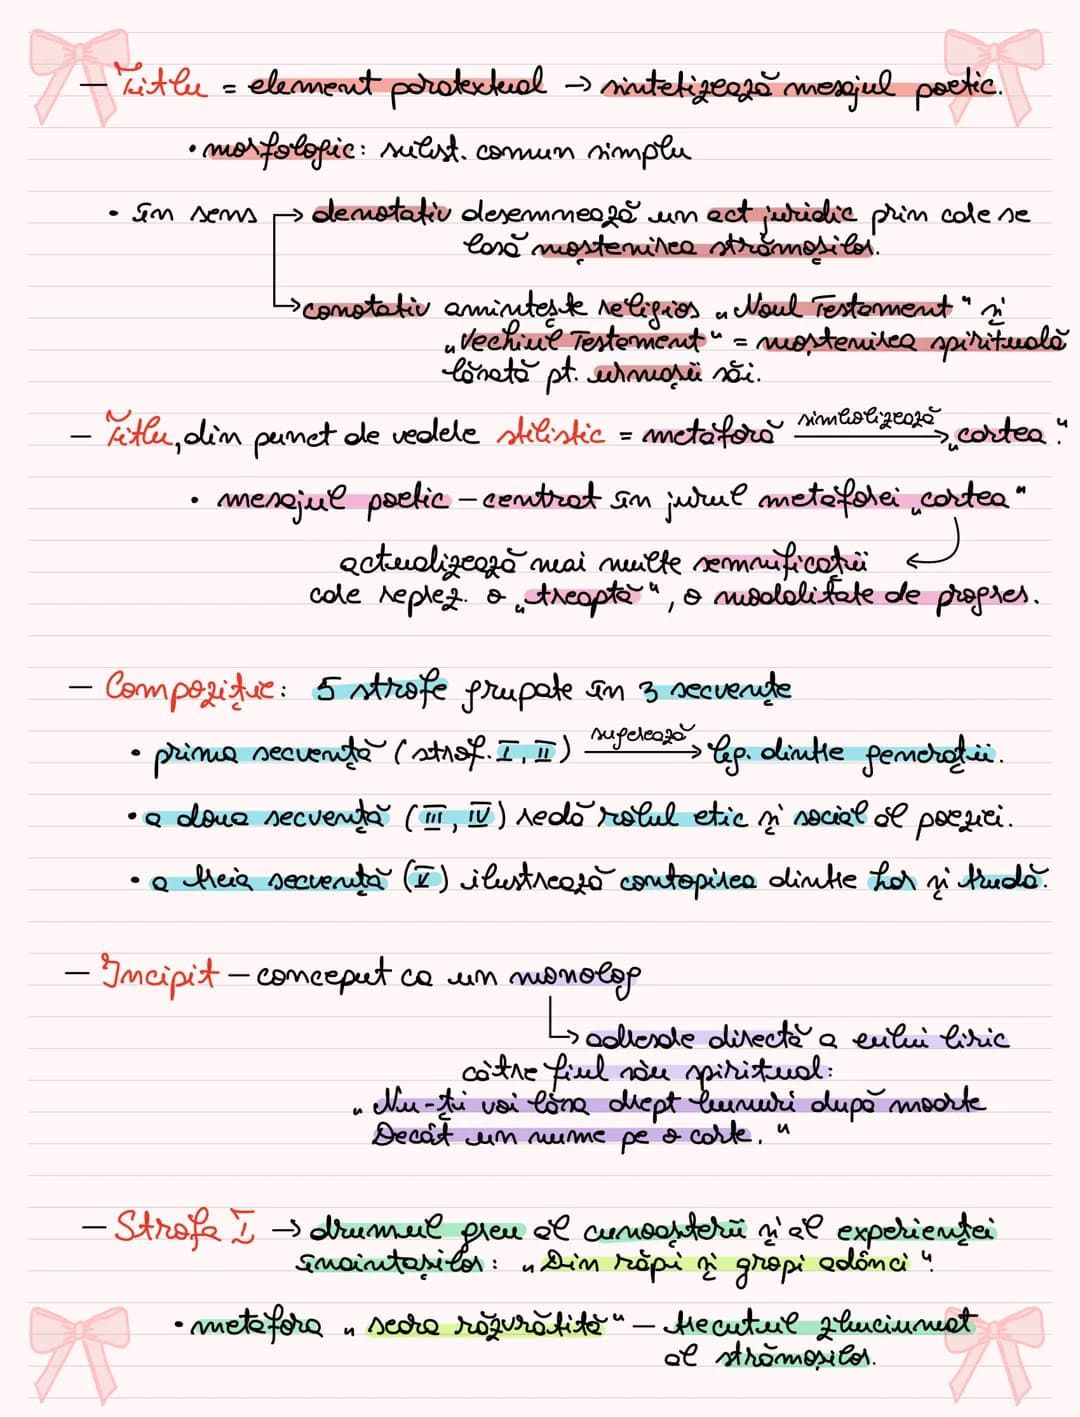 — Titlu = element paratextual → sintetizează mesajul poetic.
• morfologic: subst. comun simplu
• în sens → denotativ desemnează un act juridic prin care se
lasă moștenirea strămoșilor.
→ conotativ amintește religios „Noul Testament" și
„Vechiul Testament" = moștenirea spirituală
lăsată pt. urmașii săi.
— Titlu, din punct de vedere stilistic = metaforă simbolizează → „cartea".
• mesajul poetic – centrat în jurul metaforei „cartea"
actualizează mai multe semnificații
care reprez. o „treaptă", o modalitate de progres.
— Compoziție: 5 strofe grupate în 3 secvențe
• prima secvență (strof. I, II) sugerează → leg. dintre generații.
• a doua secvență (III, IV) redă rolul etic și social al poeziei.
• a treia secvență (V) ilustrează contopirea dintre har și trudă.
— Incipit – conceput ca un monolog
→ adresare directă a eului liric
către fiul său spiritual:
„Nu-ți voi lăsa drept bunuri după moarte
Decât un nume pe o carte."
— Strofa I → drumul greu al cunoașterii și al experienței
înaintașilor: „Din râpi și gropi adânci".
• metafora „seara răzvrătită" – trecutul zbuciumat
al strămoșilor.